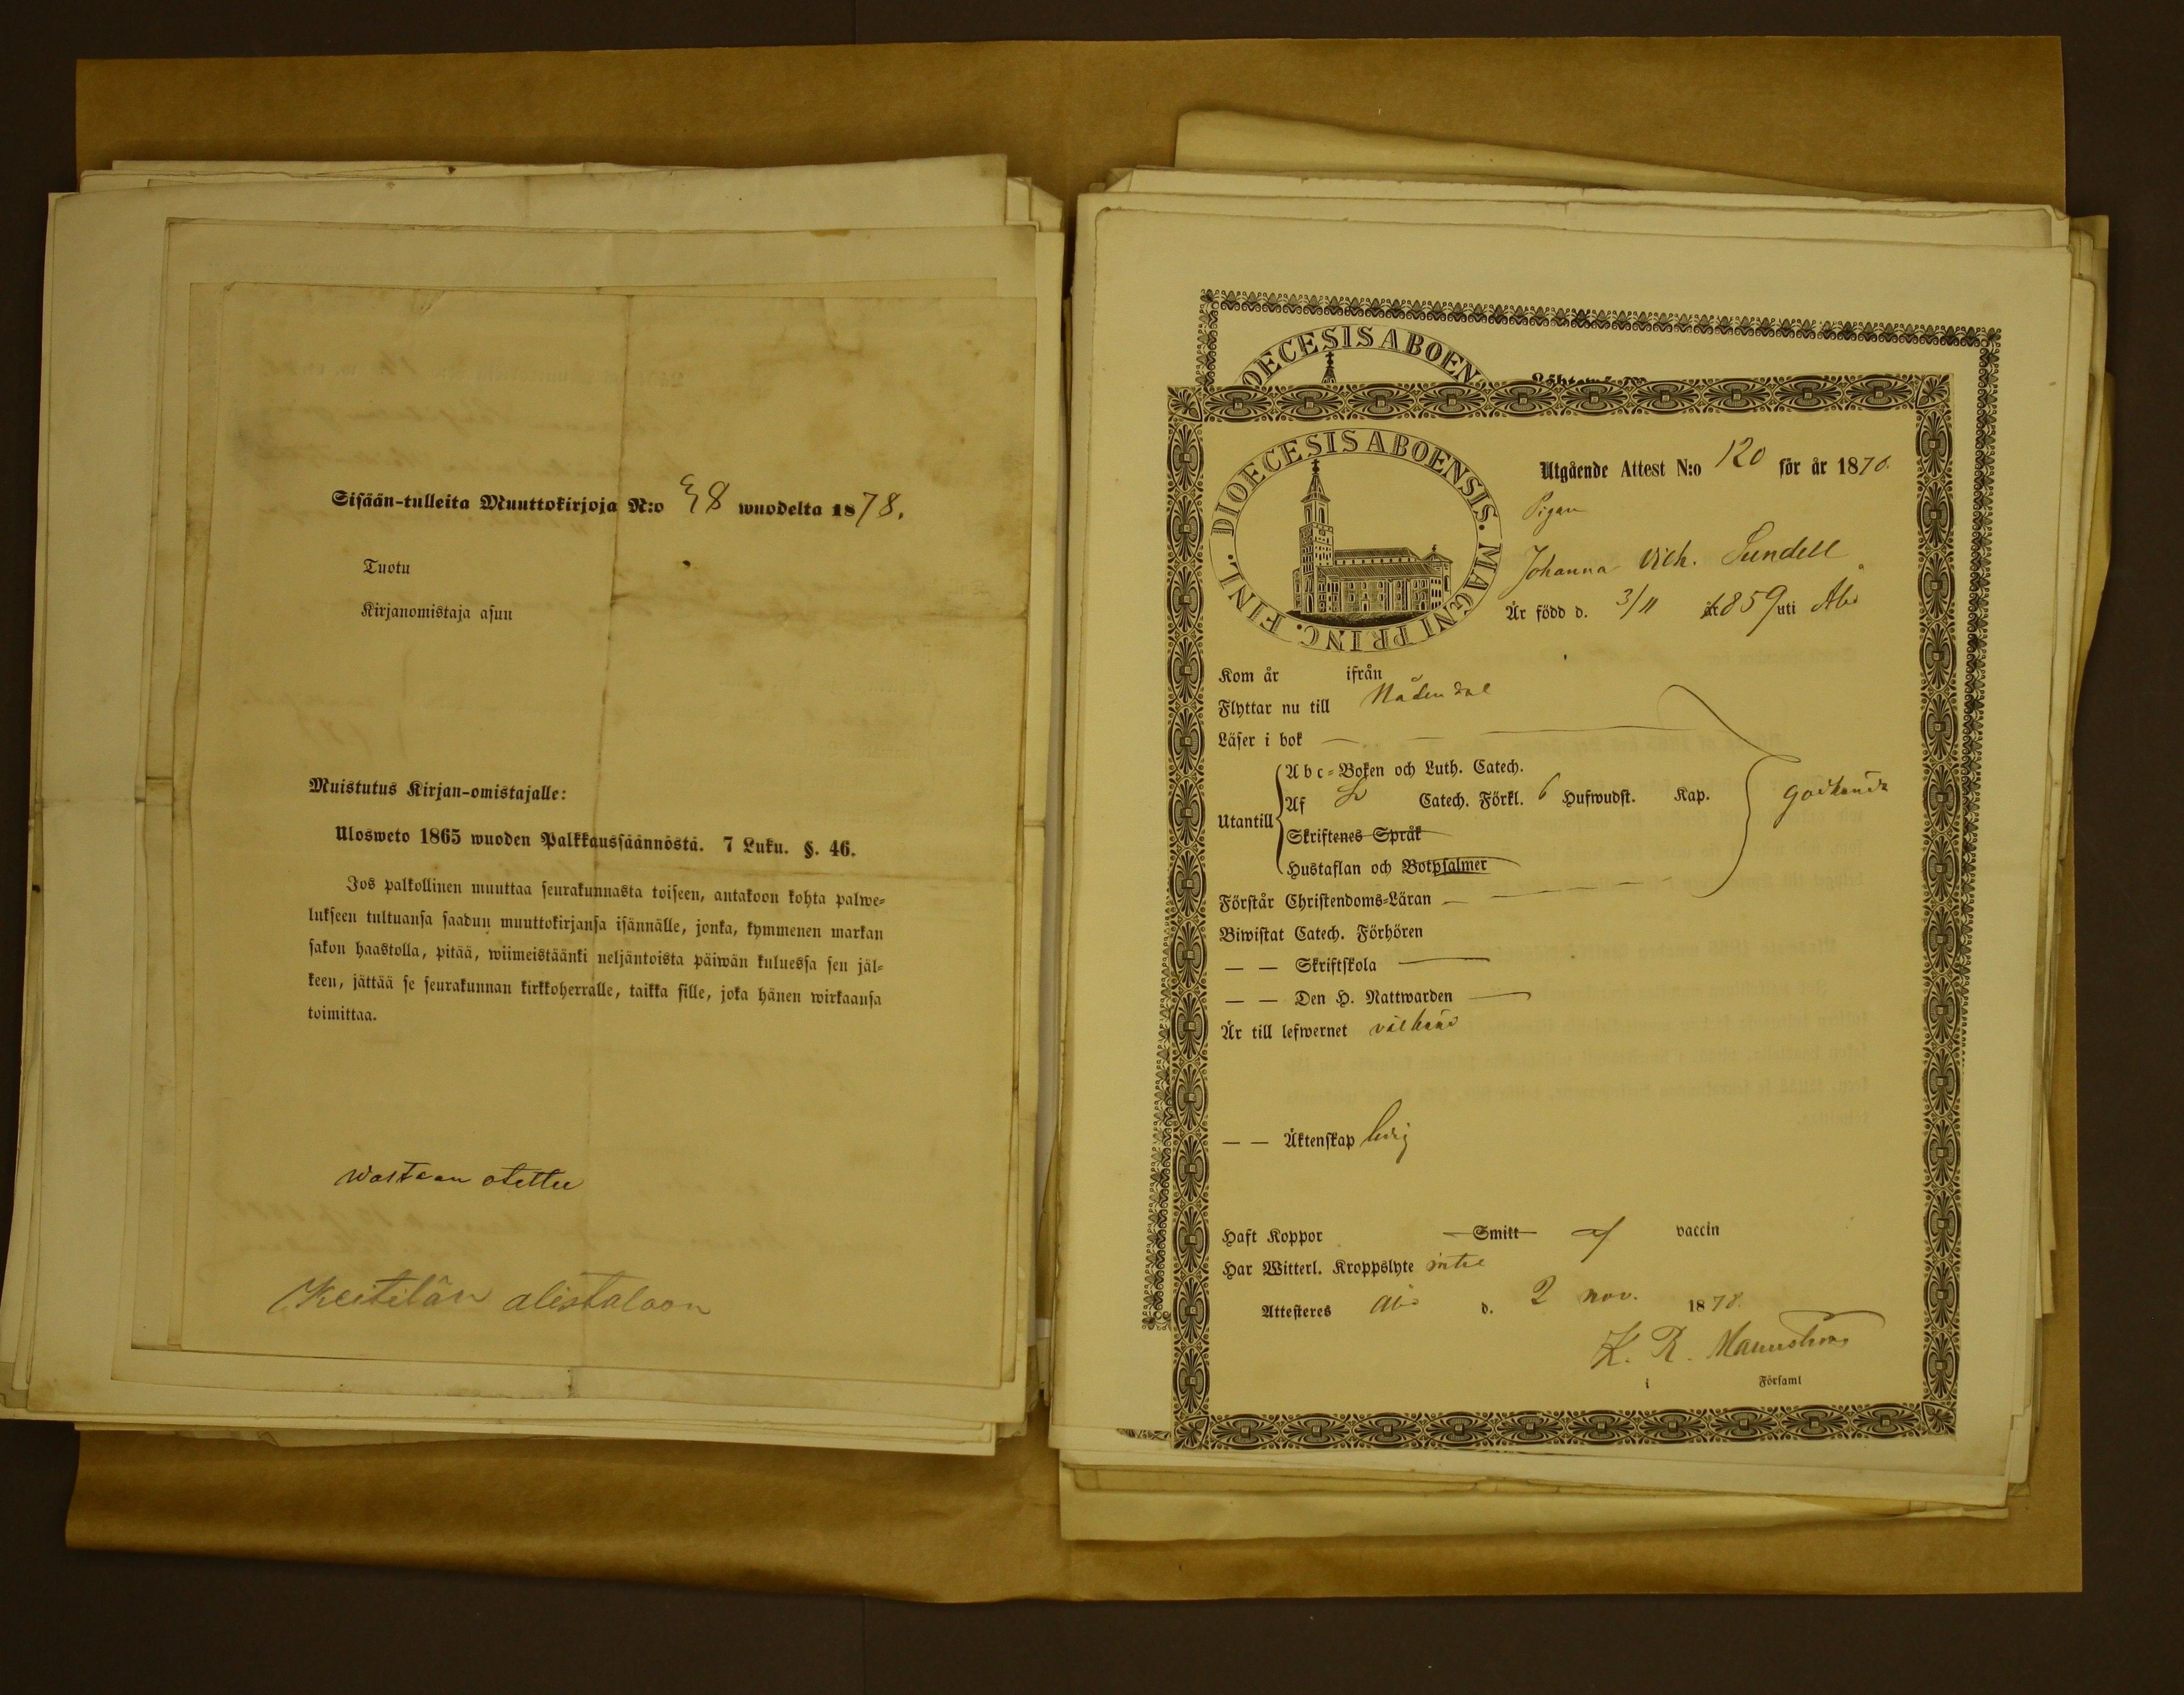 Sisään-tulleita Muuttokirjoja N:o 38 wuodelta 1878.
Tuotu
Kirjanomistaja asuu
Muistutus Kirjan-omistajalle:
Ulosweto 1865 wuoden Palkkaussäännöstä. 7 Luku. §. 46.
Jos palkollinen muuttaa seurakunnasta toiseen, antakoon kohta palwe-
lukseen tultuansa saadun muuttokirjansa isännälle, jonka, kymmenen markan
sakon haastolla, pitää, wiimeistäänki neljäntoista päiwän kuluessa sen jäl-
keen, jättää se seurakunnan kirkkoherralle, taikka sille, joka hänen wirkaansa
toimittaa.
wastaan otettu
Keitilän alistaloon
DIOECESIS ABOEN
DIOECESIS ABOENSIS. MAGNI PRINC. FINL.
Utgående Attest N:o 120 för år 1878.
Pigan
Johanna Vilh. Sundell
Är född d. 3/11 1859 uti Åbo
Kom år ifrån
Flyttar nu till Nådendal
Läser i bok
Abc-Boken och Luth. Catech.
Utantill Af Catech. Förkl. 6 Hufwudst. Kap. godkända
Skriftenes Språk
Hustaflan och Botpsalmer
Förstår Christendoms-Läran
Biwistat Catech. Förhören
— — Skriftskola
— — Den H. Nattwarden
Är till lefwernet välkänd
— — Äktenskap ledig
Haft Koppor Smitt af vaccin
Har Witterl. Kroppslyte intet
Attesteres Åbo d. 2 nov. 1878.
K. R. Malmström
i Församl